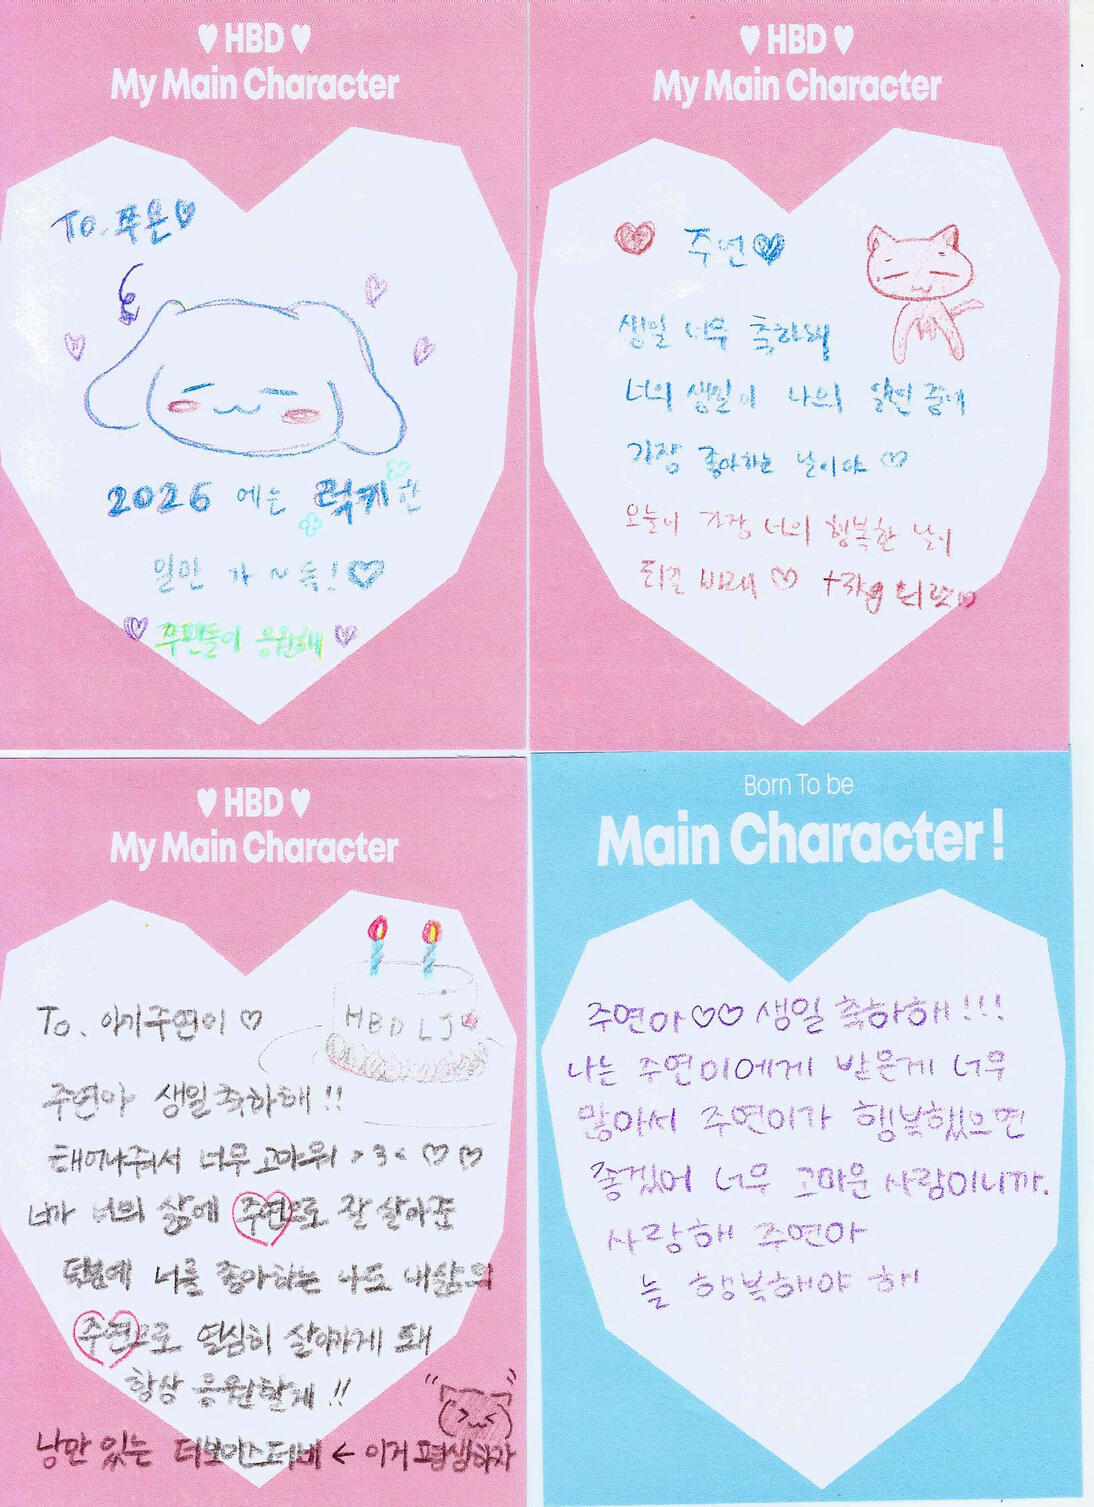 ♥ HBD ♥
My Main Character
To. 푸온♡
2026 에는 럭키한
일만 가~득!♡
♡ 쭈팬들이 응원해 ♡
♥ HBD ♥
My Main Character
♥ 주연♥
생일 너무 축하해
너의 생일이 나의 일년 중에
가장 좋아하는 날이야 ♡
오늘이 가장 너의 행복한 날이
되길 바래 ♡
♥ HBD ♥
My Main Character
HBD LJ
To. 아기주연이 ♡
주연아 생일축하해!!
태어나줘서 너무 고마워 >3< ♡♡
너가 너의 삶에 주연으로 잘 살아준
덕분에 너를 좋아하는 나도 내삶의
주연으로 열심히 살아가게 돼
항상 응원할게!!
낭만 있는 더보이즈더비 ← 이거 평생하자
Born To be
Main Character!
주연아♡♡ 생일 축하해!!!
나는 주연이에게 받은게 너무
많아서 주연이가 행복했으면
좋겠어 너무 고마운 사람이니까.
사랑해 주연아
늘 행복해야 해